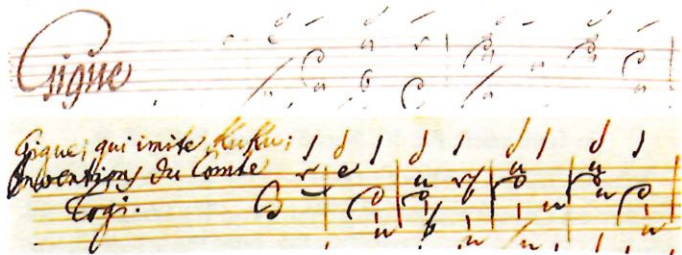 Gigue
Gigue; qui imite Kuku;
inventions du Comte
Logi.